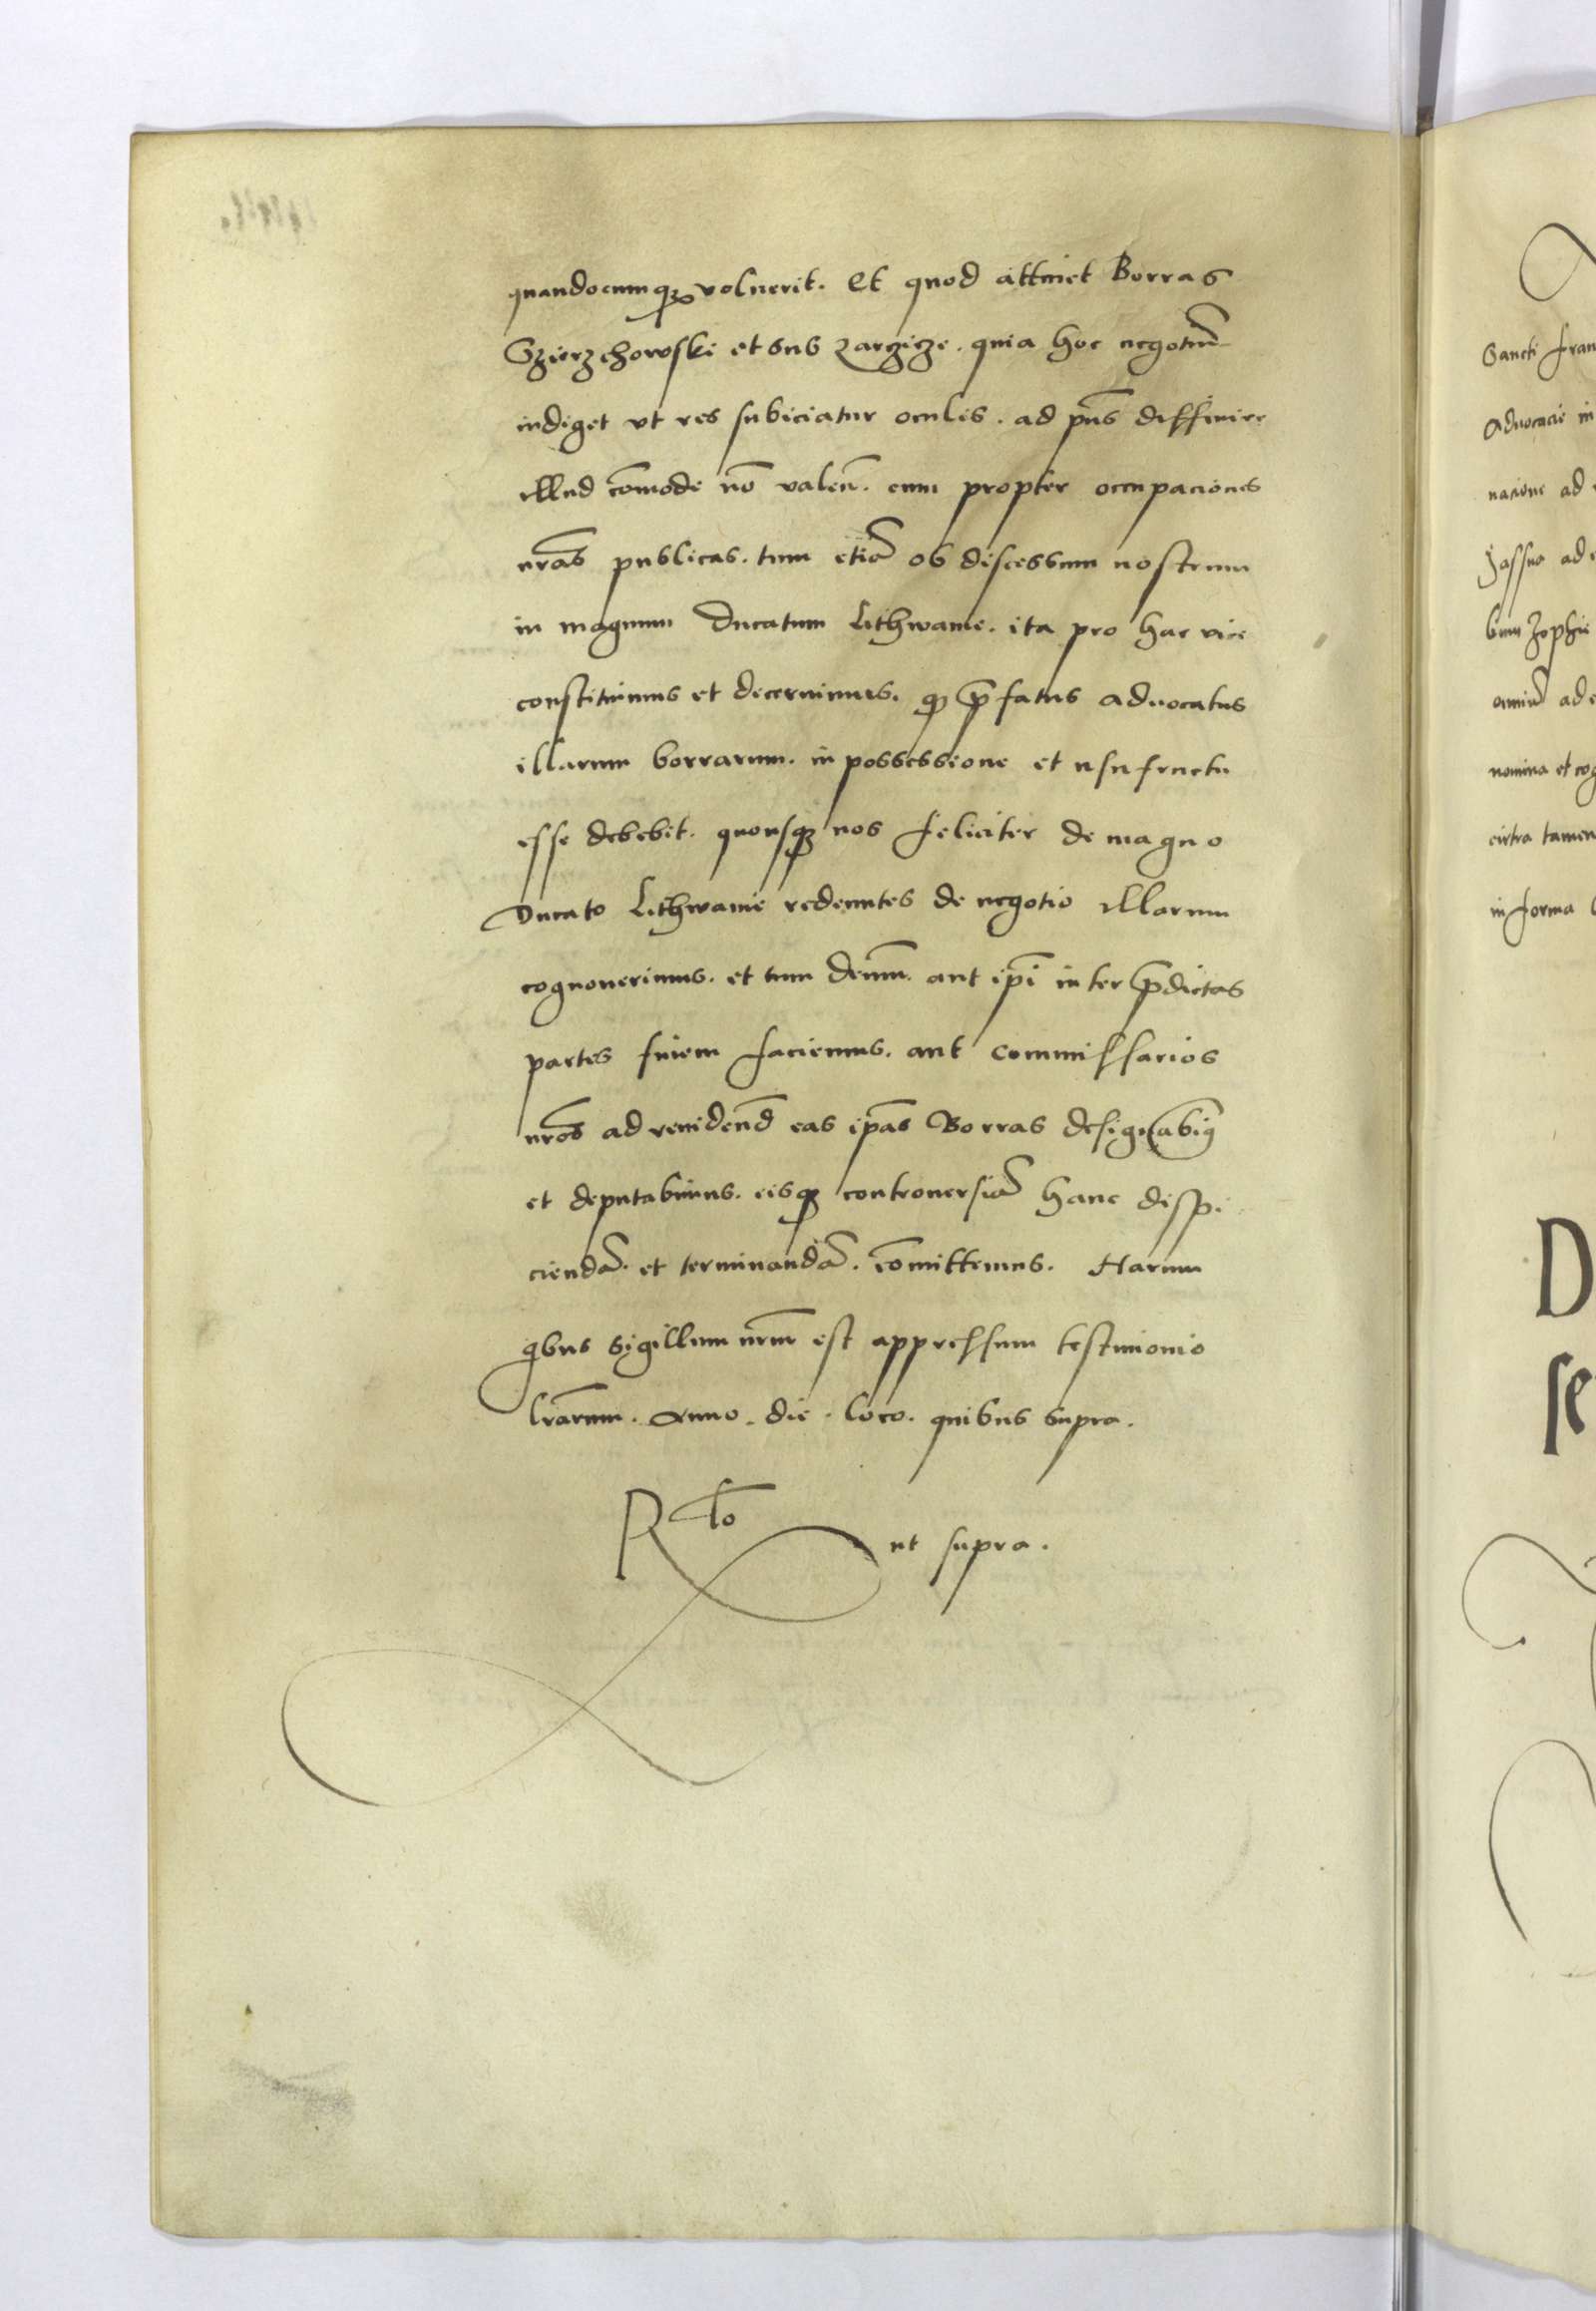 quandocumqꝫ voluerit. Et quod attinet Borras
Gzierzchowski et sub zarzicze. quia hoc negotiu͂
indiget vt res subiciatur oculis. ad pn͂s diffinire
illud co͂mode no͂ valen͂. cum propter occupaciones
nr͂as publicas. tum etia͂ ob discessum nostrum
in magnum Ducatum Lithwanie. ita pro hac vice
constituimus et decernimus. ꝙ p͂fatus aduocatus
illarum borrarum. in possessione et usufructu
esse debebit. quousqꝫ nos feliciter de magno
Ducato Lithwanie redeuntes de negotio illarum
cognouerimus. et tum demu͂. aut ip͂i inter p͂dictas
partes finem faciemus. aut commissarios
nr͂os ad reuidend͂ eas ip͂as Borras designabimꝰ
et deputabimus. eisqꝫ controuersia͂ hanc dispi
cienda͂. et terminanda͂. co͂mittemus. Harum
qͥbus sigillum nr͂m est appressum testimonio
lr͂arum. Anno. die. loco. quibus supra.
R͂lo ut supra.
Sancti Fran
Aduocacie in
nacione ad
Jassno ad
bum Zophie
omniu͂ ad
nomina et cog
citra tamen
in forma
D
se